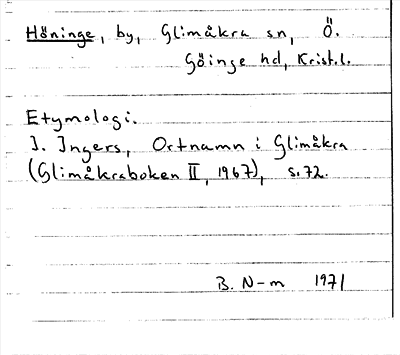 Höninge, by, Glimåkra sn, Ö.
Göinge hd, Krist.l.
Etymologi.
I. Ingers, Ortnamn i Glimåkra
(Glimåkraboken II, 1967), s. 72.
B. N-m 1971